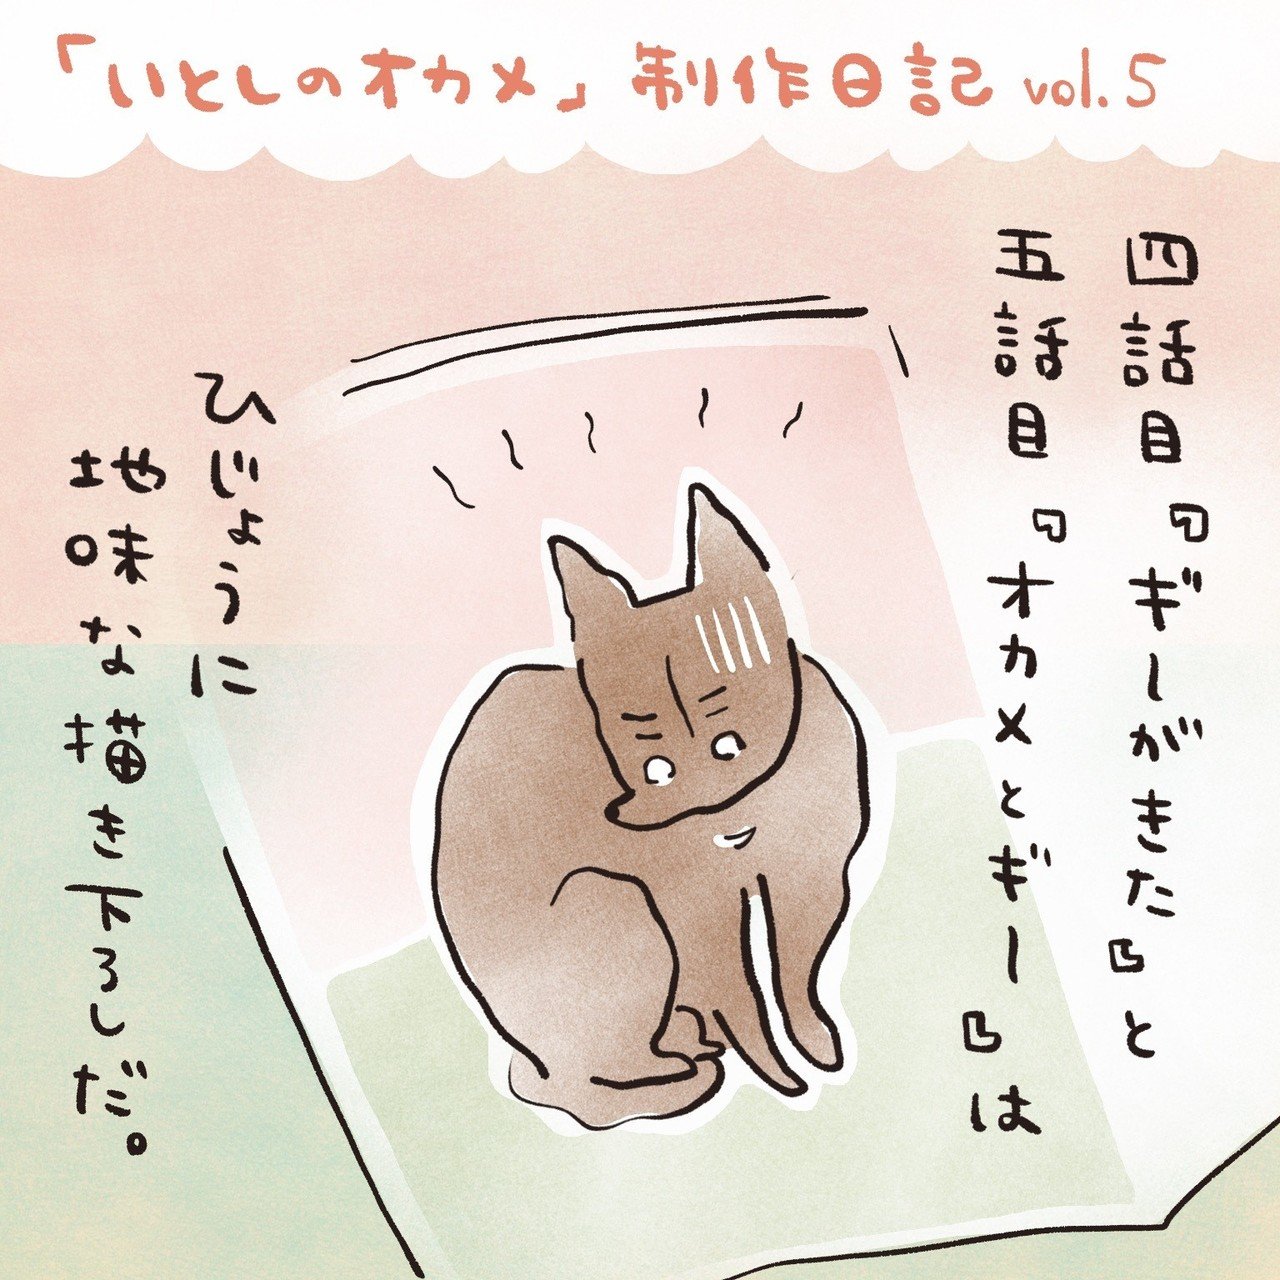 「いとしのオカメ」制作日記 vol.5
四話目『ギーがきた』と
五話目『オカメとギー』は
ひじょうに
地味な描き下ろしだ。